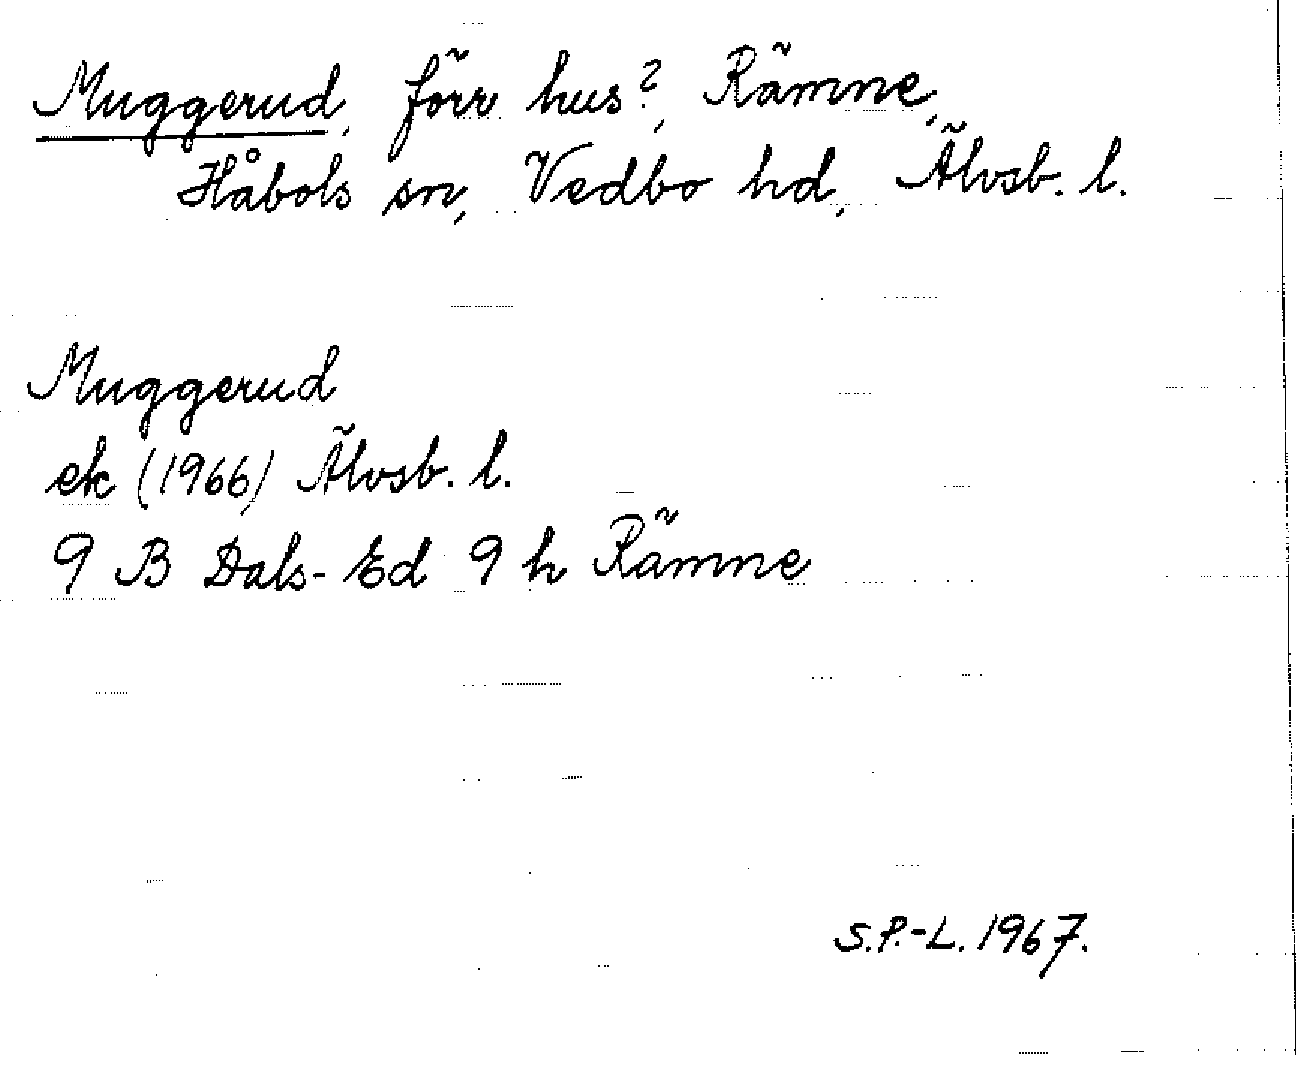 Muggerud, förr hus?, Rämne,
Håbols sn, Vedbo hd, Älvsb. l.
Muggerud
ek (1966) Älvsb. l.
9 B Dals-Ed 9 h Rämne
S.P.-L. 1967.